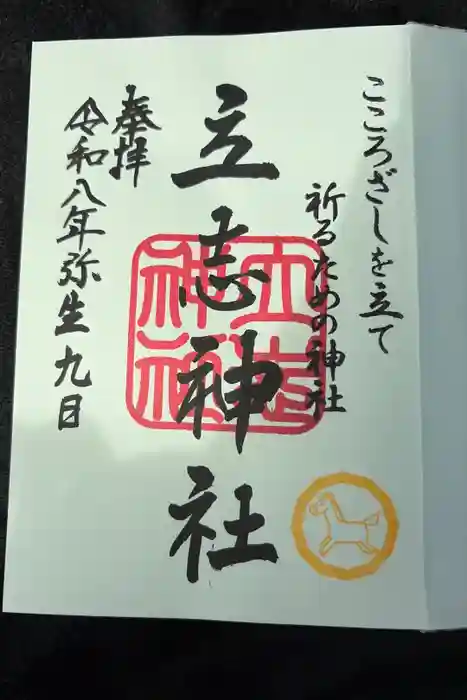 こころざしを立て
祈るための神社
立志神社
立志
神社
奉拝
令和八年弥生九日